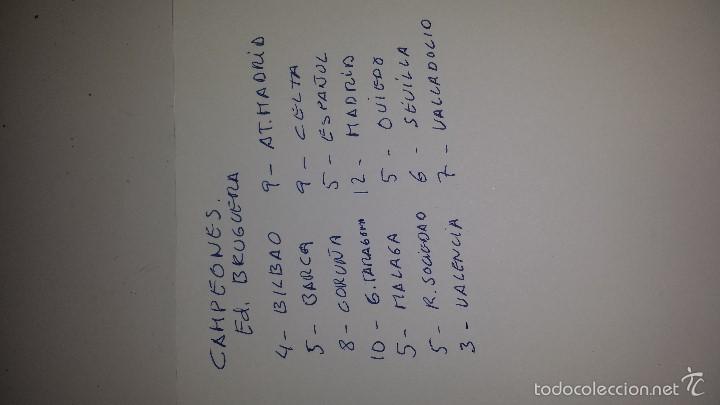 CAMPEONES.
Ed. BRUGUERA
4 - BILBAO 9 - AT. MADRID
5 - BARÇA 9 - CELTA
8 - CORUÑA 5 - ESPAÑOL
10 - G. TARRAGONA 12 - MADRID
5 - MALAGA 5 - OVIEDO
5 - R. SOCIEDAD 6 - SEVILLA
3 - VALENCIA 7 - VALLADOLID
todocoleccion.net